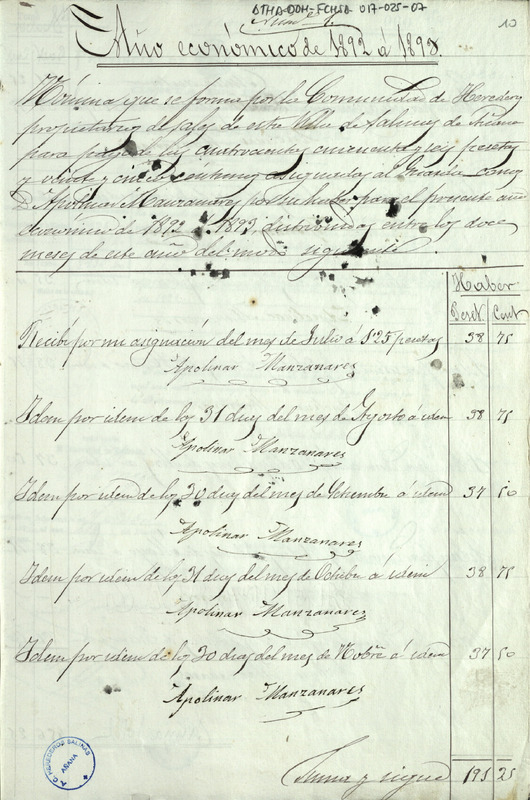 ATHA-DOH-FCHSA 017-025-07
10
Num.º 1.
Año económico de 1892 á 1893.
Nómina que se forma por la Comunidad de Herederos
propietarios de sales de esta Villa de Salinas de Añana
para pago de las cuatrocientas cincuenta y seis pesetas
y veinte y cinco centimos asignadas al Guarda
D. Apolinar Manzanares por su haber para el presente año
economico de 1892 á 1893, distribuidas entre los doce
meses de este año del modo siguiente.
Haber
Peset. Cent
Recibí por mi asignación del mes de Julio á 1'25 pesetas 38 75
Apolinar Manzanares
Idem por idem de los 31 dias del mes de Agosto á idem 38 75
Apolinar Manzanares
Idem por idem de los 30 dias del mes de Setiembre á idem 37 50
Apolinar Manzanares
Idem por idem de los 31 dias del mes de Octubre á idem 38 75
Apolinar Manzanares
Idem por idem de los 30 dias del mes de Nobre á idem 37 50
Apolinar Manzanares
Suma y sigue 191 25
A.C. HEREDEROS SALINAS
AÑANA